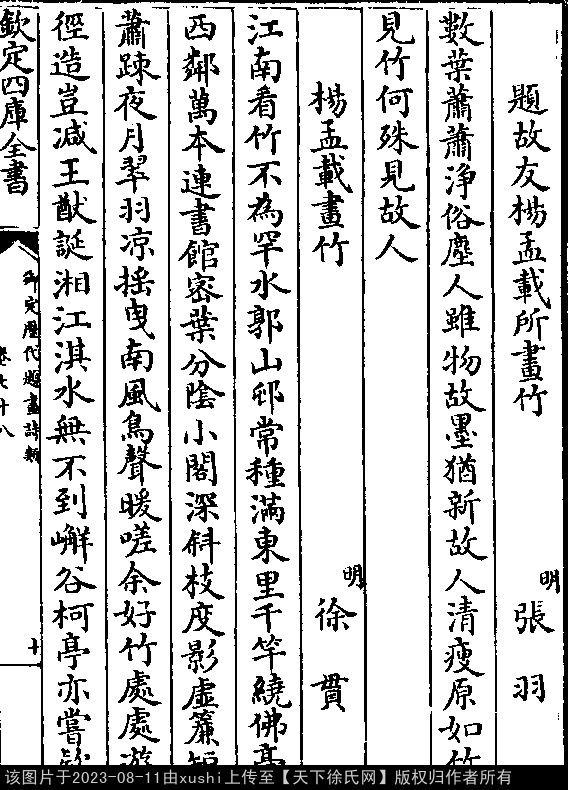 題故友楊孟載所畫竹 明 張羽
數葉蕭蕭淨俗塵人雖物故墨猶新故人清瘦原如竹
見竹何殊見故人
楊孟載畫竹 明 徐賁
江南看竹不為罕水郭山邨常種滿東里千竿繞佛亭
西鄰萬本連書館密葉分陰小閣深斜枝度影虛簾短
蕭踈夜月翠羽凉揺曵南風鳥聲暖嗟余好竹處處遊
徑造豈减王猷誕湘江淇水無不到嶰谷柯亭亦嘗
欽定四庫全書
御定歷代題畫詩類
卷七十八
十
该图片于2023-08-11由xushi上传至【天下徐氏网】版权归作者所有